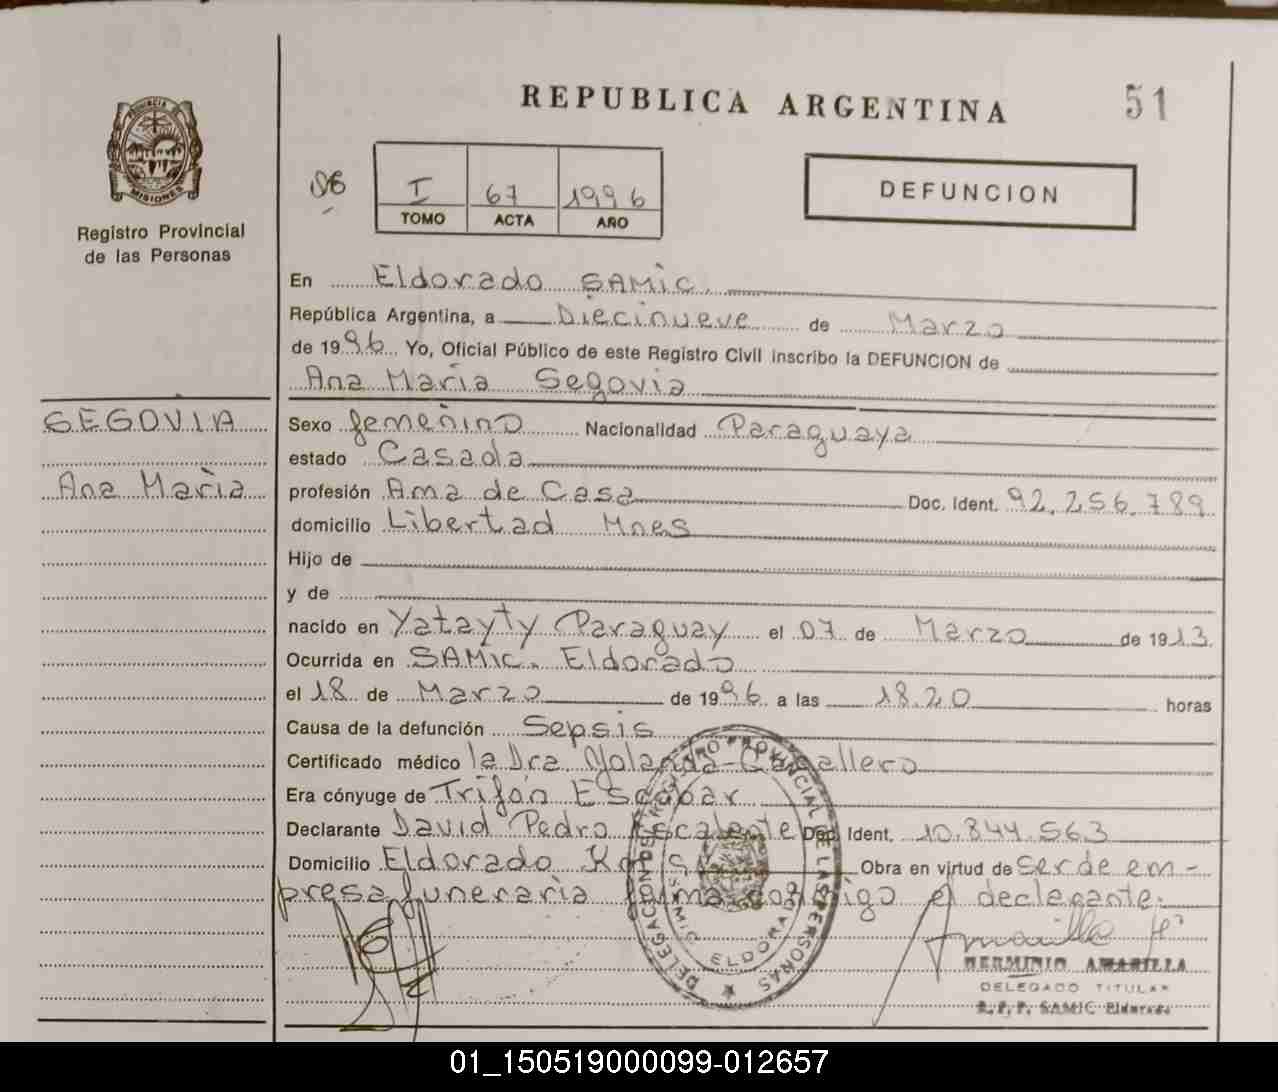 REPUBLICA ARGENTINA
51
PROVINCIA DE
MISIONES
Registro Provincial
de las Personas
I 67 1996
TOMO ACTA AÑO
DEFUNCION
En Eldorado SAMic.
República Argentina, a Diecinueve de Marzo
de 1996 Yo, Oficial Público de este Registro Civil inscribo la DEFUNCION de
Ana Maria Segovia
SEGOVIA
Ana Maria
Sexo femenino Nacionalidad Paraguaya
estado Casada
profesión Ama de Casa Doc. Ident. 92.256.789
domicilio Libertad Mnes
Hijo de
y de
nacido en Yatayty Paraguay el 07 de Marzo de 1913
Ocurrida en SAMic. Eldorado
el 18 de Marzo de 1996 a las 18.20 horas
Causa de la defunción Sepsis
Certificado médico la Dra Yolanda Caballero
Era cónyuge de Trifón Escobar
Declarante David Pedro Escalante Doc. Ident. 10.844.563
Domicilio Eldorado Km Obra en virtud de ser de em-
presa funeraria firma conmigo el declarante.
DELEGACION DE REGISTRO PROVINCIAL DE LAS PERSONAS
SAMIC ELDORADO
HERMINIO AMARILLA
DELEGADO TITULAR
R.P.P. SAMIC Eldorado
01_150519000099-012657